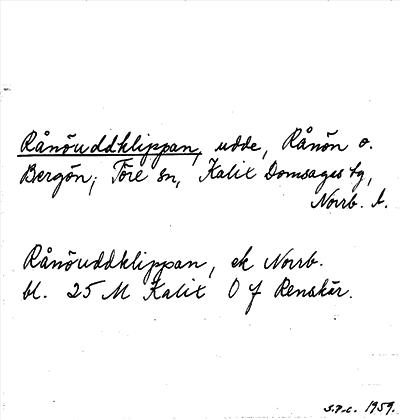 Rånöuddklippan, udde, Rånön o.
Bergön; Töre sn, Kalix Domsagas tg,
Norrb. l.
Rånöuddklippan, ek Norrb.
bl. 25 M Kalix O f Renskär.
1959.